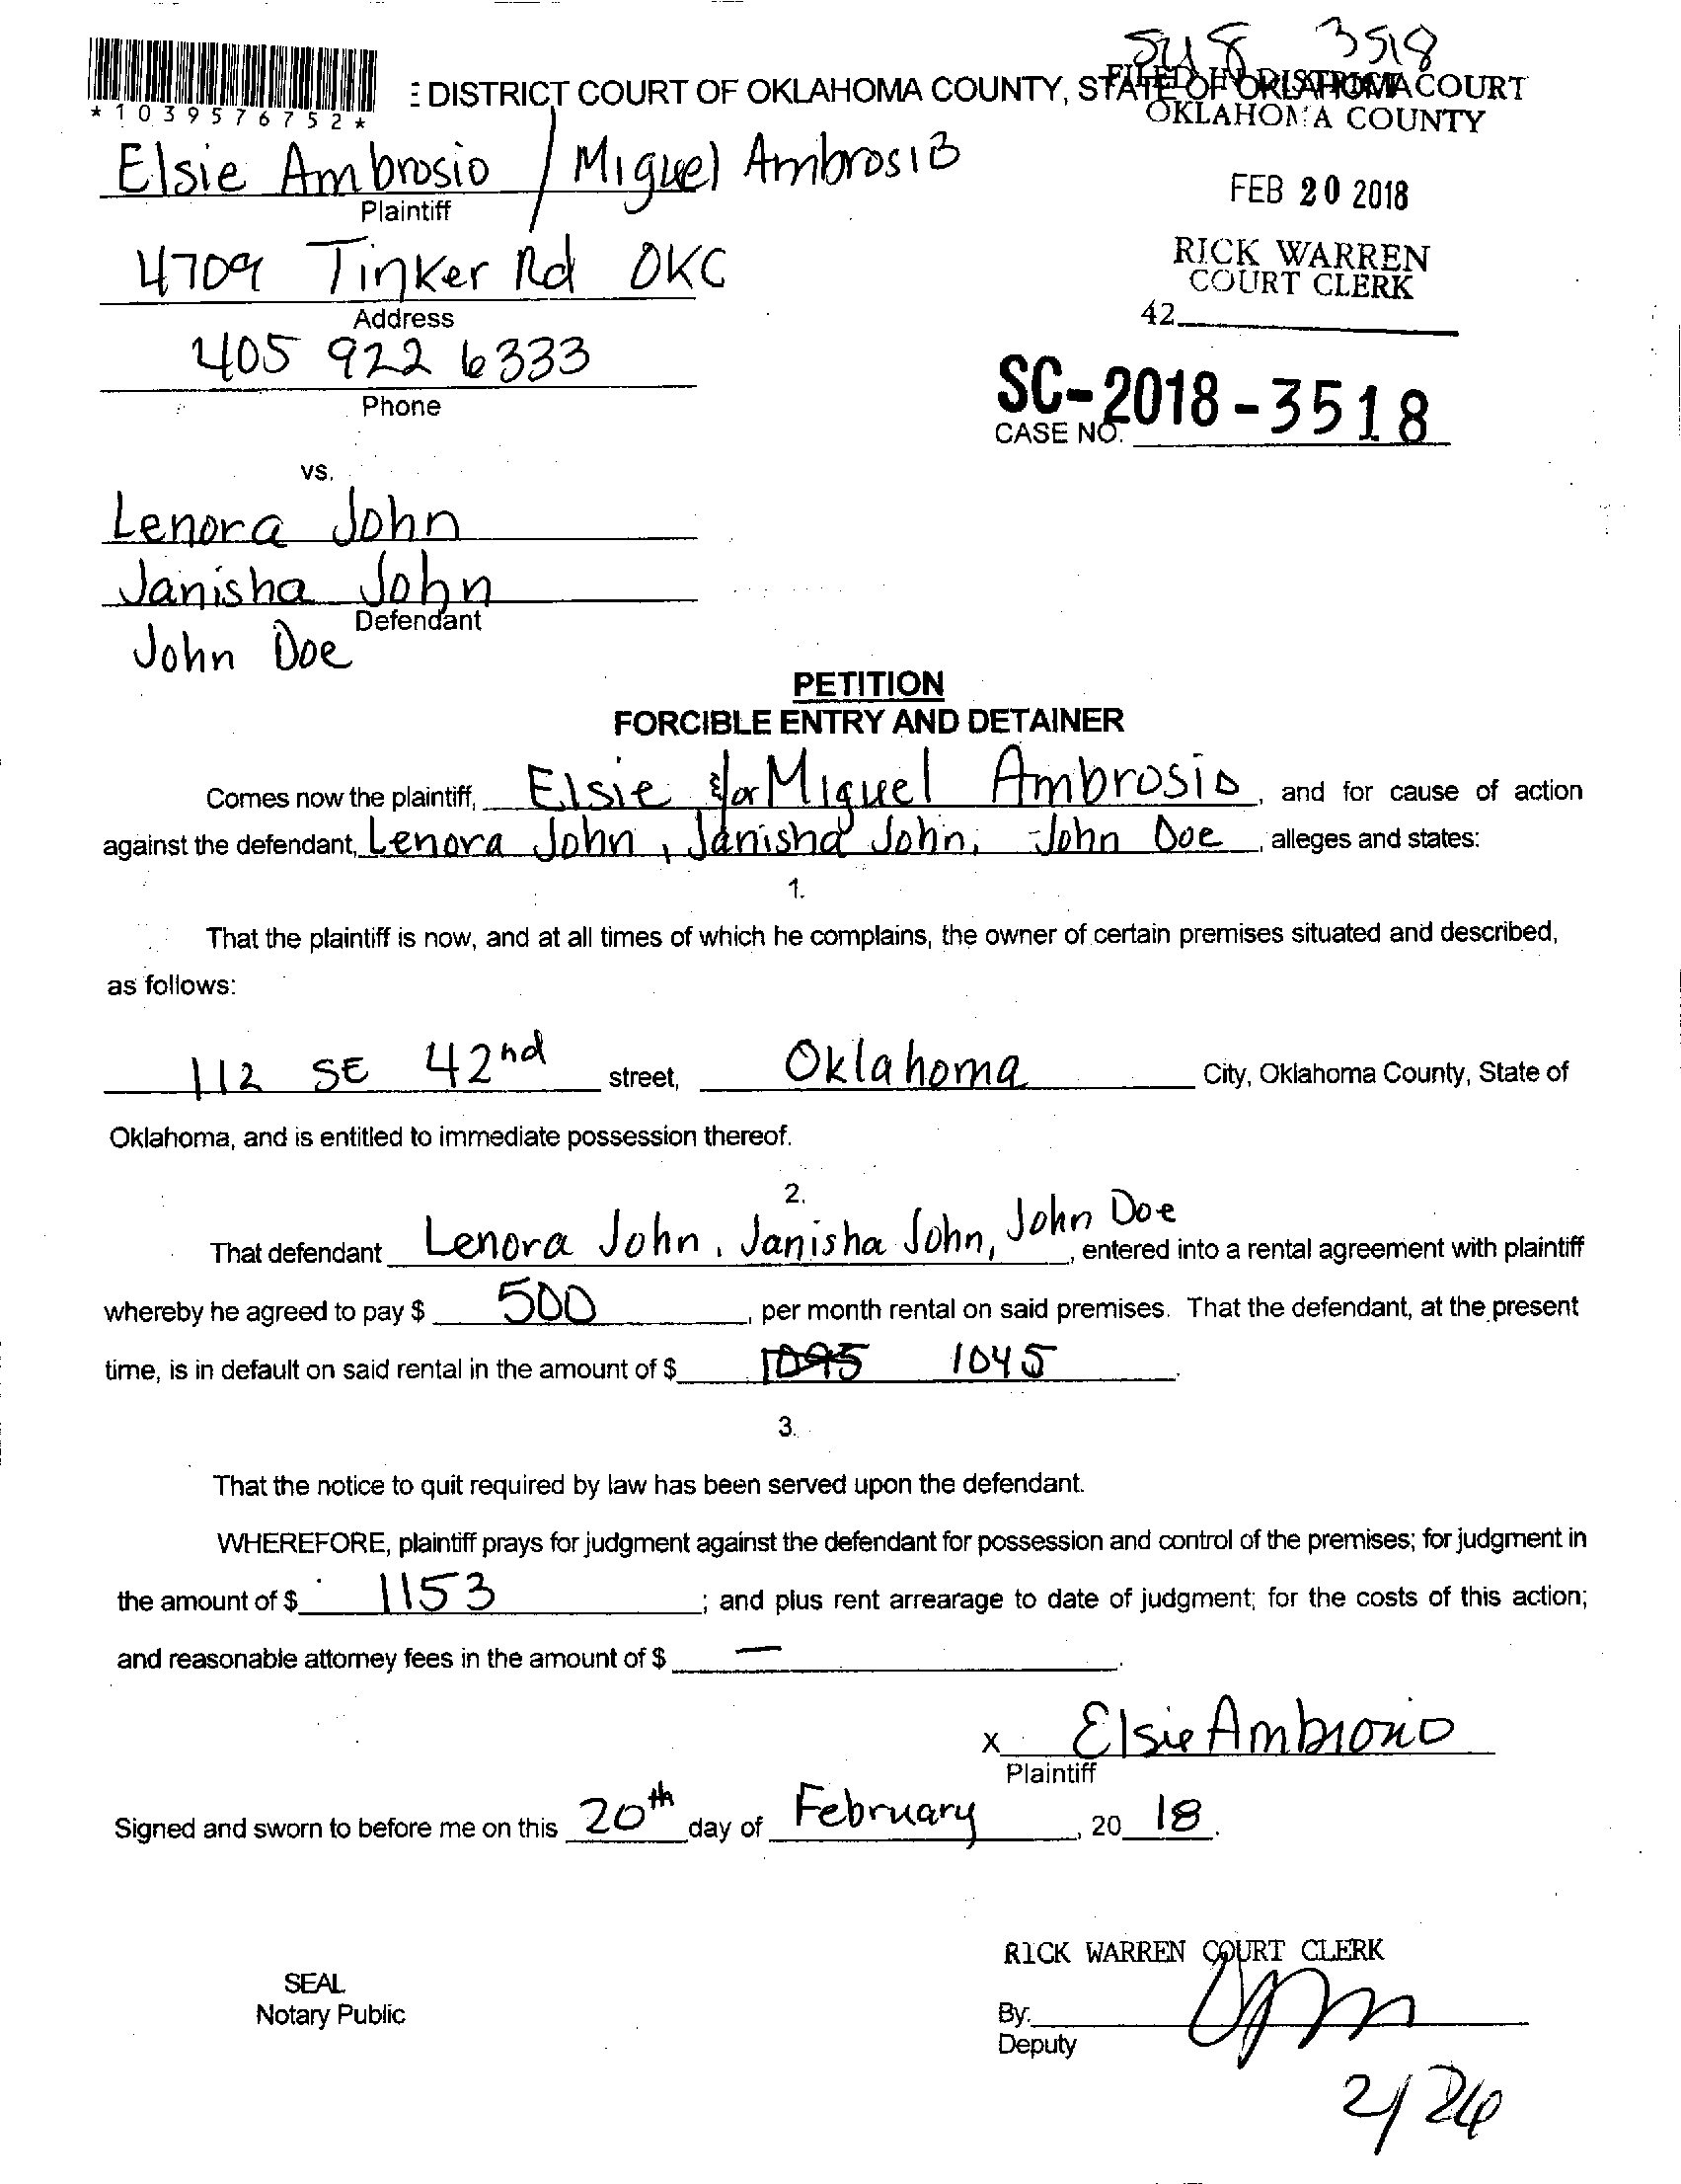 3518
*1039576752*
E DISTRICT COURT OF OKLAHOMA COUNTY, STATE OF OKLAHOMA
FILED IN DISTRICT COURT
OKLAHOMA COUNTY
Elsie Ambrosio / Miguel Ambrosio
Plaintiff
FEB 20 2018
4709 Tinker Rd OKC
Address
RICK WARREN
COURT CLERK
42
405 922 6333
Phone
SC-2018-3518
CASE NO.
vs.
Lenora John
Janisha John
Defendant
John Doe
PETITION
FORCIBLE ENTRY AND DETAINER
Comes now the plaintiff, Elsie &/or Miguel Ambrosio, and for cause of action
against the defendant, Lenora John, Janisha John, John Doe, alleges and states:
1.
That the plaintiff is now, and at all times of which he complains, the owner of certain premises situated and described,
as follows:
112 SE 42nd street, Oklahoma City, Oklahoma County, State of
Oklahoma, and is entitled to immediate possession thereof.
2.
That defendant Lenora John, Janisha John, John Doe, entered into a rental agreement with plaintiff
whereby he agreed to pay $ 500, per month rental on said premises. That the defendant, at the present
time, is in default on said rental in the amount of $ 1095 1045.
3.
That the notice to quit required by law has been served upon the defendant.
WHEREFORE, plaintiff prays for judgment against the defendant for possession and control of the premises; for judgment in
the amount of $ 1153; and plus rent arrearage to date of judgment; for the costs of this action;
and reasonable attorney fees in the amount of $ —.
x Elsie Ambrosio
Plaintiff
Signed and sworn to before me on this 20th day of February, 2018.
RICK WARREN COURT CLERK
SEAL
Notary Public
By:
Deputy
2/26